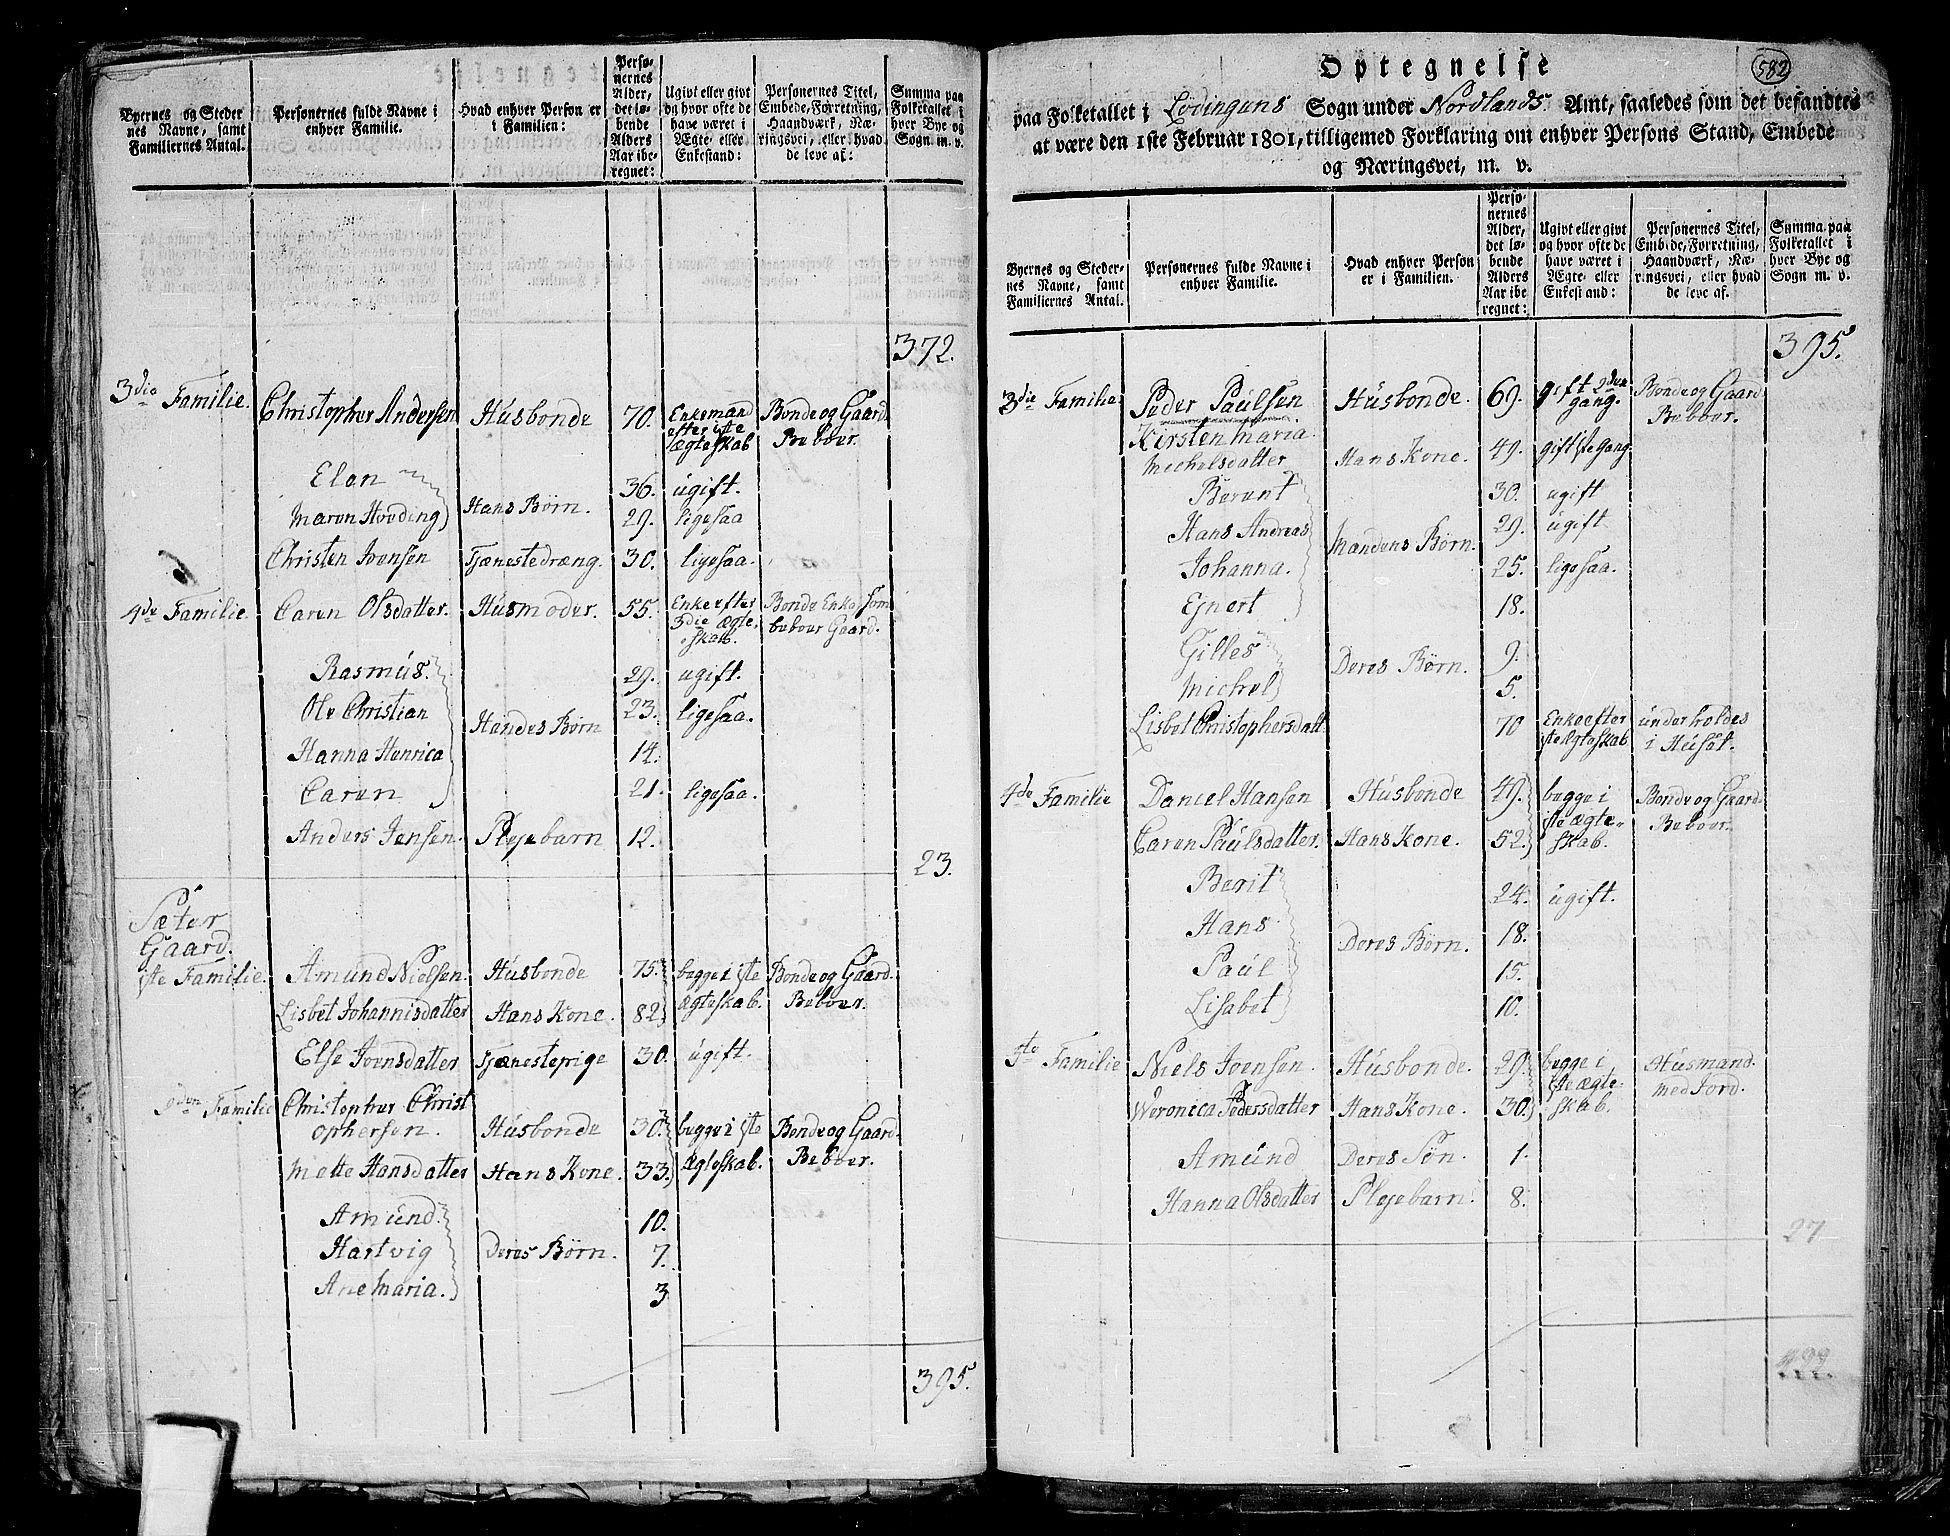 Byernes og Steder
nes Navne, samt
Familiernes Antal.
Personernes fulde Navne i
enhver Familie.
Hvad enhver Person er
i Familien:
Perso-
nernes
Alder,
det lø-
bende
Alders
Aar ibe-
regnet:
Ugivt eller givt
og hvor ofte de
have været i
Ægte- eller
Enkestand:
Personernes Titel,
Embede, Forretning,
Haandværk, Næ-
ringsvei, eller hvad
de leve af:
Summa paa
Folketallet i
hver Bye og
Sogn m. v.
372.
3die Familie. Christopher Andersen Husbonde 70. Enkemand Bonde og Gaard
efter 1ste Beboer.
Ægteskab
Elen 36. ugift.
Maren Hveding Hans Børn. 29. ligesaa
Christen Jvensen Tjænestedræng. 30. ligesaa.
4de Familie. Caren Olsdatter. Husmoder. 55. Enke efter Bonde Enke som
3die Ægte beboer Gaard.
skab.
Rasmus. 29. ugift.
Ole Christian 23. ligesaa.
Hendes Børn
Hanna Henrica 14.
Caren 21. ligesaa.
Anders Jensen. Plejebarn 12.
23.
Sæter
Gaard.
1ste Familie. Amund Nielsen. Husbonde 75. begge i 1ste Bonde og Gaard
Lisbet Johannisdatter Hans Kone. 82 Ægteskab. Beboer.
Else Joensdatter Tjænestepige 30. ugift.
2den Familie Christopher Christ
ophersen. Husbonde 30. begge i 1ste Bonde og Gaard
Mette Hansdatter Hans Kone. 33. Ægteskab. Beboer.
Amund. 10.
Hartvig Deres Børn. 7.
Ane Maria. 3
395.
582
Optegnelse
paa Folketallet i Lødingens Sogn under Nordlands Amt, saaledes som det befandtes
at være den 1ste Februar 1801, tilligemed Forklaring om enhver Persons Stand, Embede
og Næringsvei, m. v.
Byernes og Steder-
nes Navne, samt
Familiernes Antal.
Personernes fulde Navne i
enhver Familie.
Hvad enhver Person
er i Familien.
Perso-
nernes
Alder,
det lø-
bende
Alders
Aar ibe
regnet:
Ugivt eller givt
og hvor ofte de
have været i
Ægte- eller
Enkestand:
Personernes Titel,
Embede, Forretning,
Haandværk, Næ-
ringsvei, eller hvad
de leve af.
Summa paa
Folketallet i
hver Bye og
Sogn m. v.
395.
3die Familie Peder Paulsen Husbonde. 69. gift 2den Bonde og Gaard
gang. Beboer.
Kirsten Maria
Michelsdatter Hans Kone. 49. gift 1ste Gang.
Berent 30. ugift
Hans Andreas 29. ugift
Mandens Børn.
Johanna. 25. ligesaa.
Ejnert 18.
Gilles 9.
Deres Børn.
Michel 5.
Lisbet Christophersdatt 70 Enke efter underholdes
1ste Ægteskab i Huset.
4de Familie Daniel Hansen Husbonde 49. begge i Bonde og Gaard
1ste Ægte- Beboer.
Caren Paulsdatter. Hans Kone. 52. skab.
Berit 24. ugift.
Hans 18.
Deres Børn.
Paul 15.
Lisabet 10.
5te Familie Niels Joensen Husbonde. 29. begge i Husmand
1ste Ægte- med Jord.
Weronica Pedersdatter Hans Kone. 30. skab.
Amund Deres Søn. 1.
Hanna Olsdatter Plejebarn. 8.
27